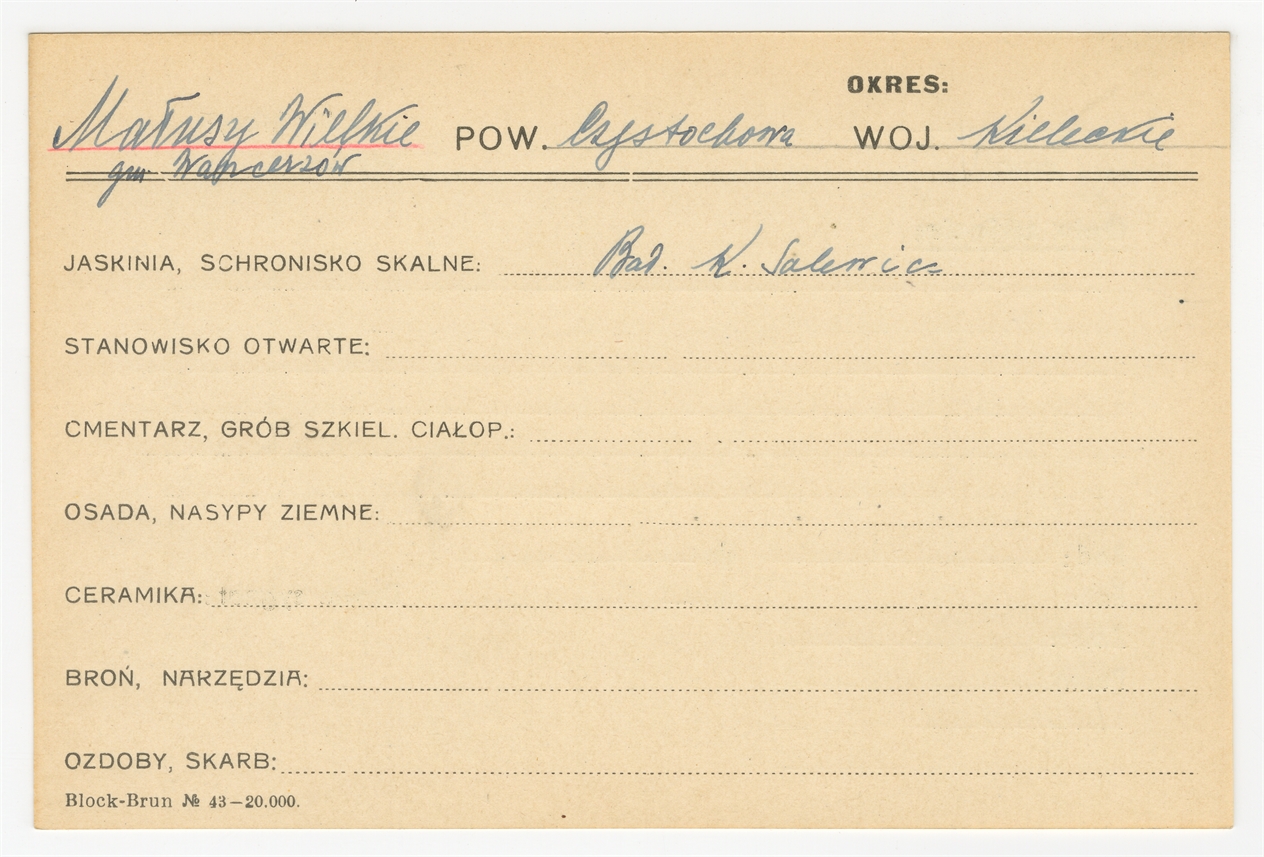 OKRES:
Małusy Wielkie POW. Częstochowa WOJ. Kieleckie
gm. Wancerzów
JASKINIA, SCHRONISKO SKALNE: Bad. K. Salewicz
STANOWISKO OTWARTE:
CMENTARZ, GRÓB SZKIEL. CIAŁOP.:
OSADA, NASYPY ZIEMNE:
CERAMIKA:
BROŃ, NARZĘDZIA:
OZDOBY, SKARB:
Block-Brun № 43–20.000.